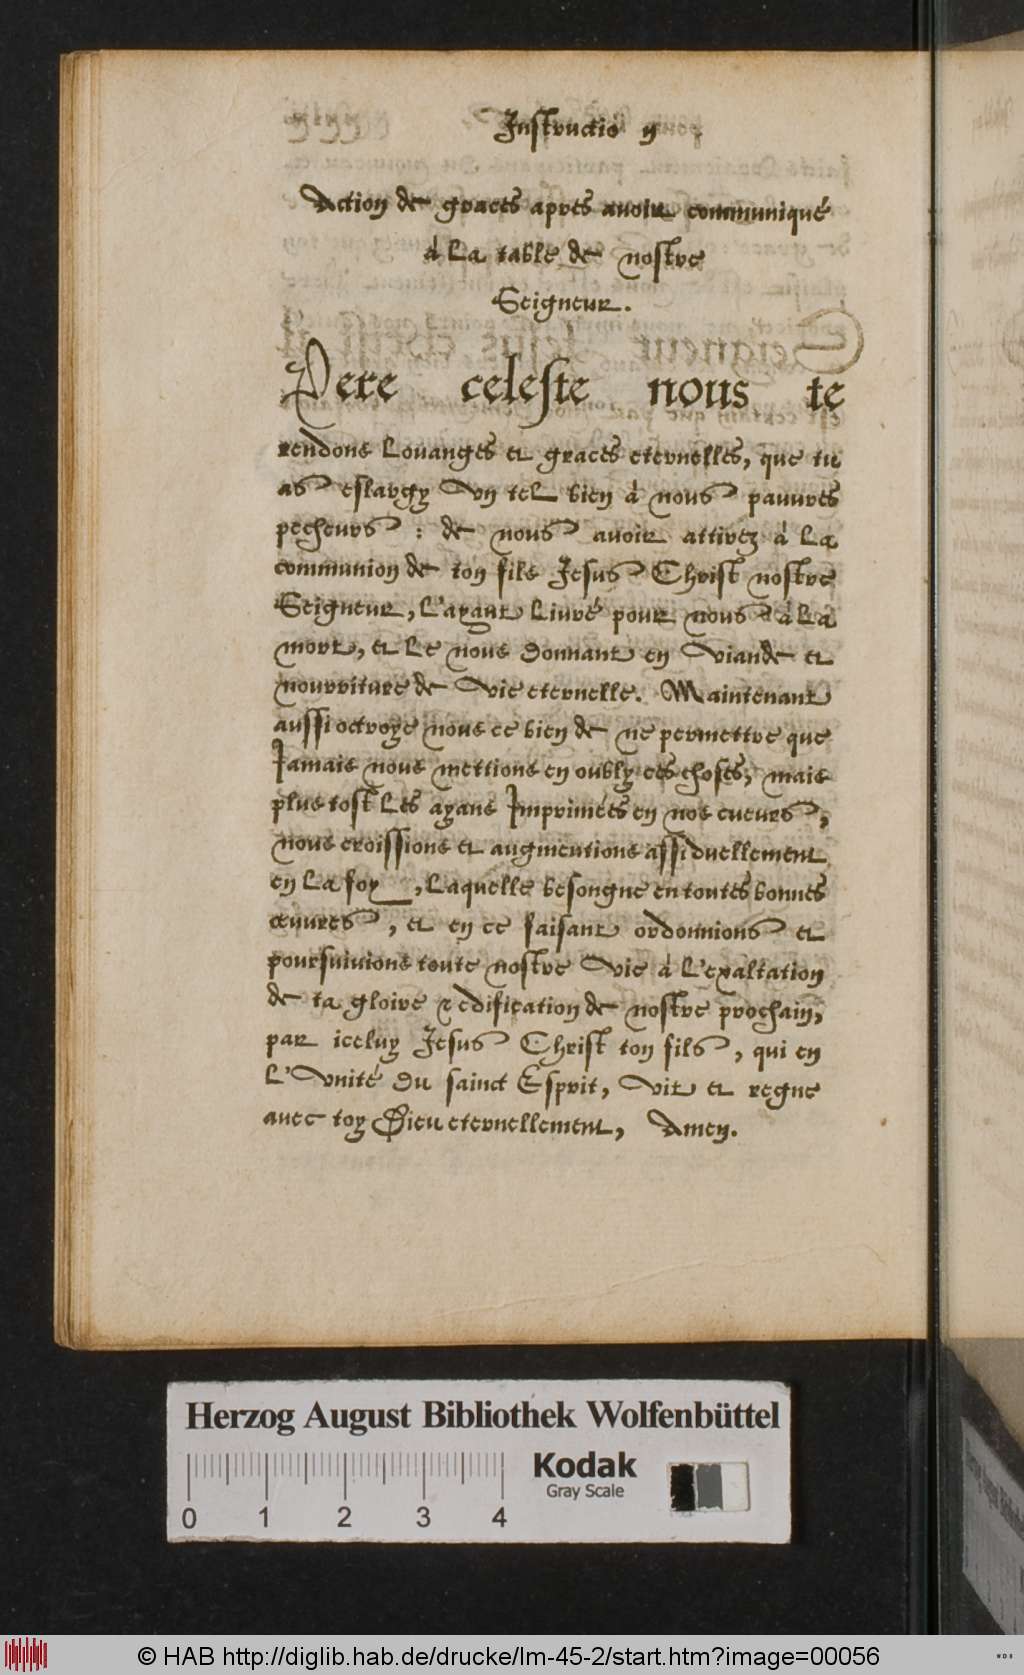 Instructiō
Action de graces apres auoir communiqué
à la table de nostre
Seigneur.
Pere celeste nous te
rendons louanges et graces eternelles, que tu
as eslargy vn tel bien à nous pauures
pecheurs : de nous auoir attirez à la
communion de ton fils Jesus Christ nostre
Seigneur, l'ayant liuré pour nous à la
mort, et le nous donnant en viande et
nourriture de vie eternelle. Maintenant
aussi octroye nous ce bien de ne permettre que
Jamais nous mettions en oubly ces choses, mais
plus tost les ayans Imprimées en nos cueurs,
nous croissions et augmentions assiduellement
en la foy, laquelle besongne en toutes bonnes
œuures, et en ce faisant ordonnions et
poursuiuions toute nostre vie à l'exaltation
de ta gloire & edification de nostre prochain,
par iceluy Jesus Christ ton fils, qui en
l'vnité du sainct Esprit, vit et regne
auec toy Dieu eternellement, Amen.
Herzog August Bibliothek Wolfenbüttel
Kodak
Gray Scale
0 1 2 3 4
© HAB http://diglib.hab.de/drucke/lm-45-2/start.htm?image=00056